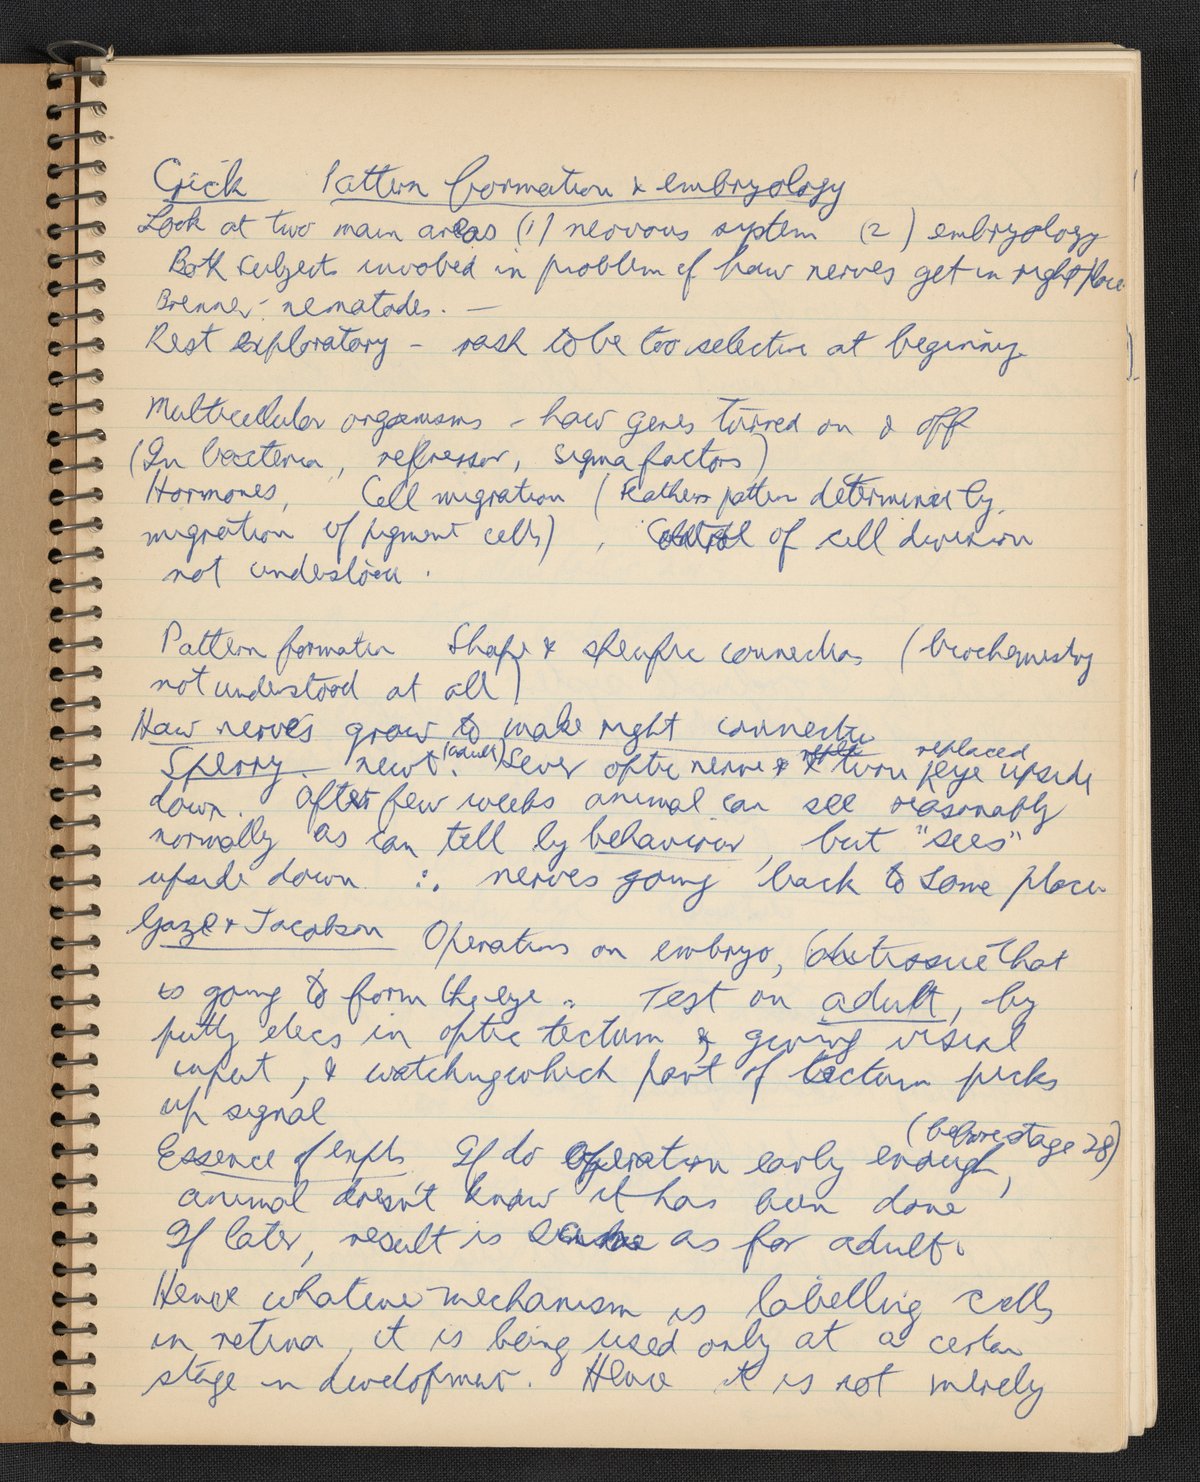 Crick Pattern formation & embryology
Look at two main areas (1) nervous system (2) embryology
Both subjects involved in problem of how nerves get in right place
Brenner - nematodes. —
Rest exploratory - rash to be too selective at beginning
Multicellular organisms - how genes turned on & off
(In bacteria, repressor, sigma factors)
Hormones, Cell migration (Feathers pattern determined by
migration of pigment cells), Control of cell division
not understood.
Pattern formation Shape & specific connections (biochemistry
not understood at all)
How nerves grow to make right connectn
Sperry - newt (adult). Sever optic nerve & turn eye upside
replaced
down. After few weeks animal can see reasonably
normally as can tell by behaviour, but "sees"
upside down ∴ nerves going back to same place
Gaze & Jacobson Operations on embryo, tissue that
is going to form the eye. Test on adult, by
puttg elecs in optic tectum & giving visual
input, & watching which part of tectum picks
up signal
(before stage 28)
Essence of expts If do operation early enough,
animal doesn't know it has been done
If later, result is same as for adult.
Hence whatever mechanism is labelling cells
in retina, it is being used only at a certain
stage in development. Hence it is not merely